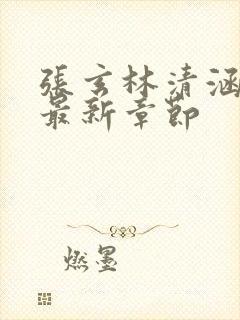 張玄林清涵
最新章節
燃墨